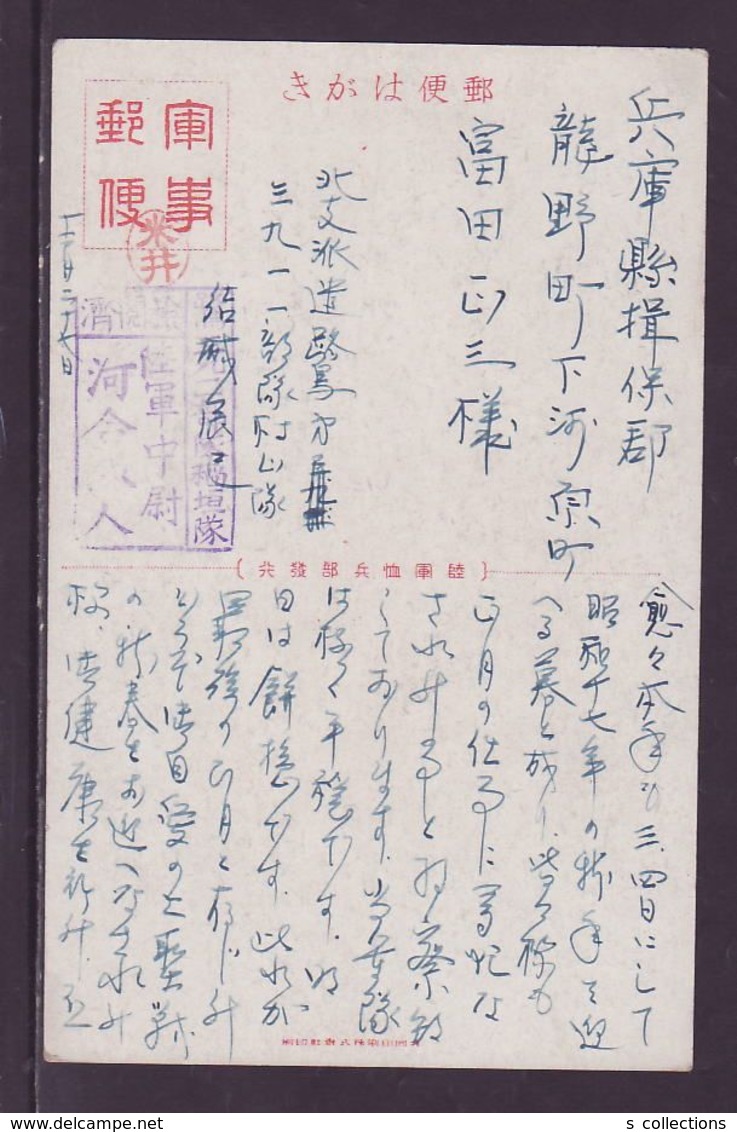 郵便はがき
軍事
郵便
兵庫縣揖保郡
龍野町下河原町
富田正三様
北支派遣
三九一一部隊村山隊
十二月二十七日
米井
檢閲濟
稲垣隊
陸軍中尉
河合 人
{陸軍恤兵部發行}
愈々本年も三、四日にして
昭和十七年の新年を迎
へる暮と成り、皆々様も
正月の仕事に多忙な
されます事と拝察致
しております。当部隊
は極く平穏です。明
日は餅搗です。此れが
最後の正月と存じます
どうぞ御自愛の上聖戦
の新春をお迎へなされ
御健康を祈ります